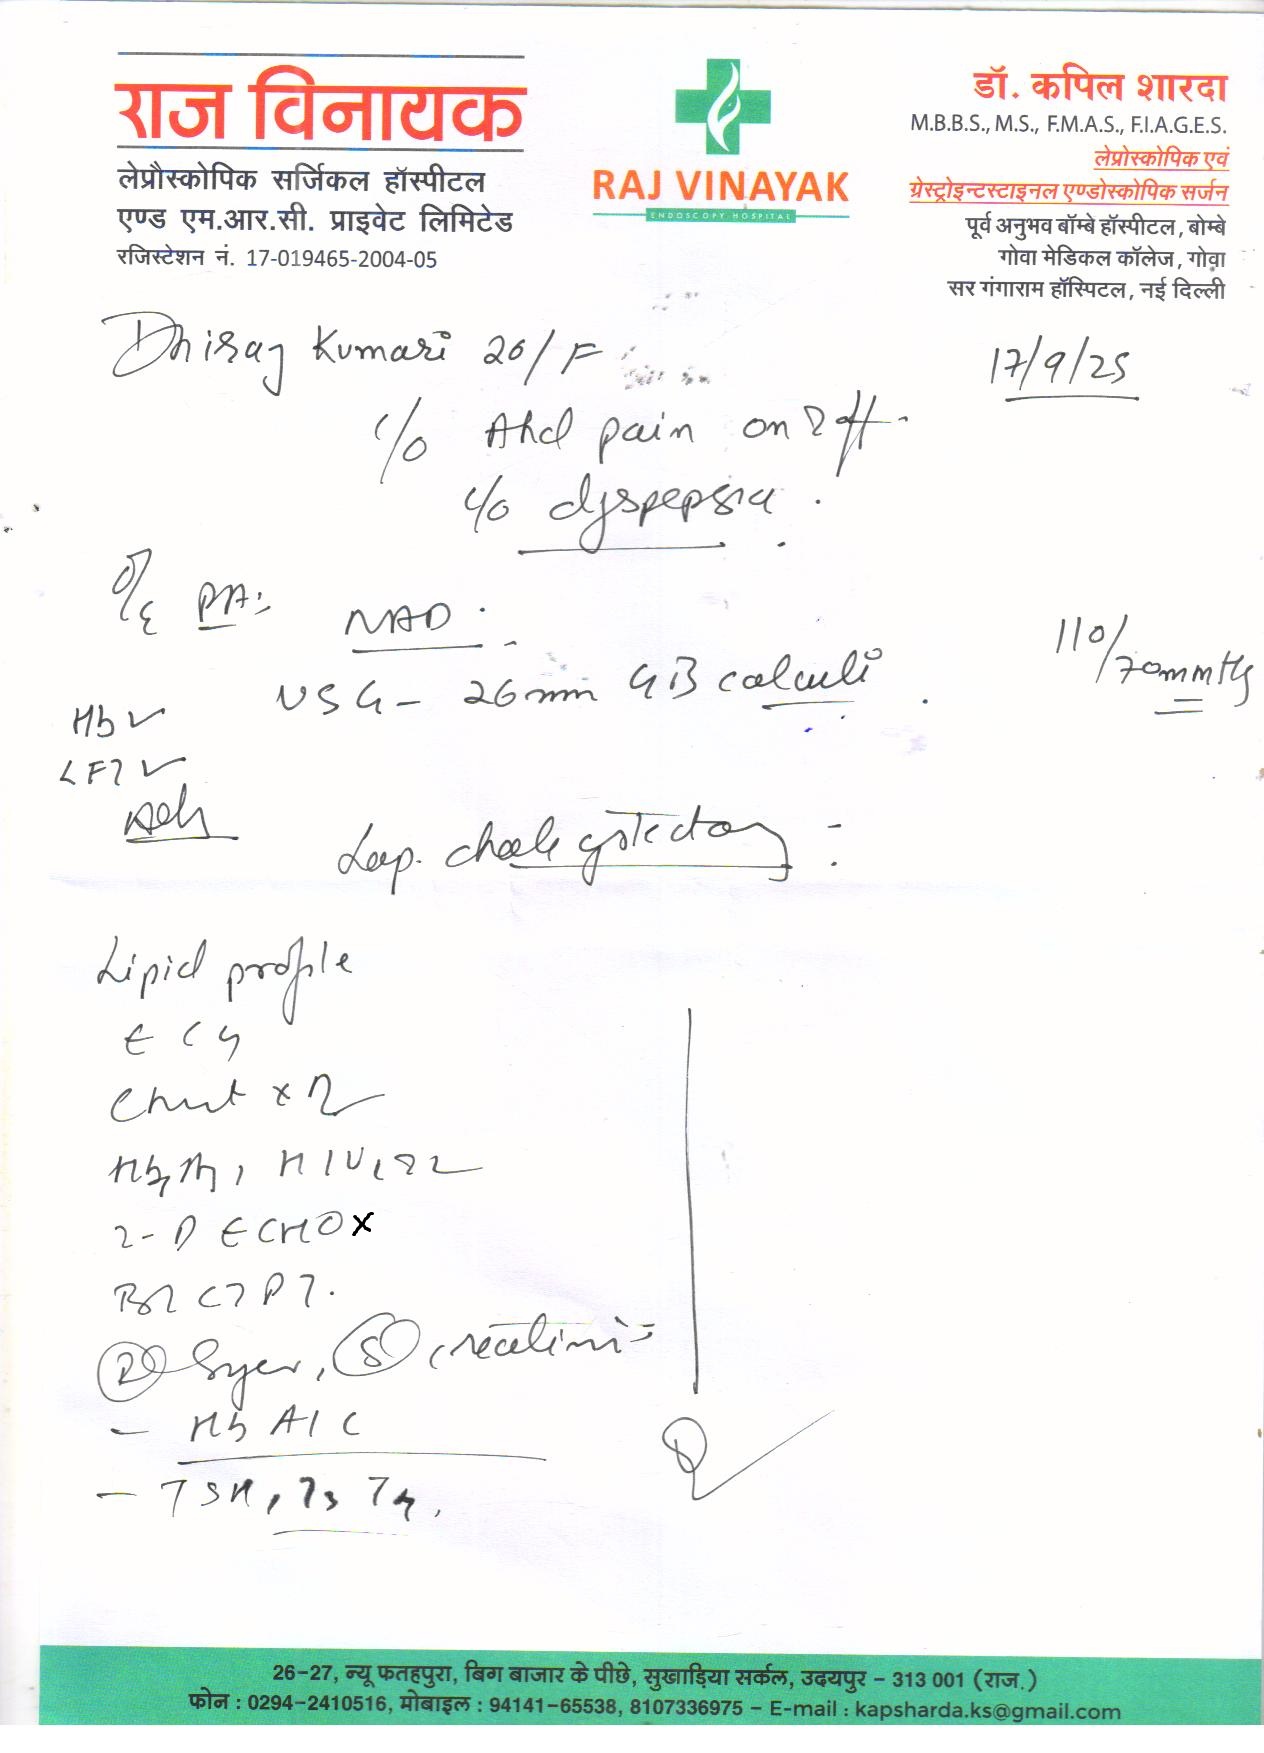 राज विनायक
लेप्रौस्कोपिक सर्जिकल हॉस्पीटल
एण्ड एम.आर.सी. प्राइवेट लिमिटेड
रजिस्टेशन नं. 17-019465-2004-05
RAJ VINAYAK
ENDOSCOPY HOSPITAL
डॉ. कपिल शारदा
M.B.B.S., M.S., F.M.A.S., F.I.A.G.E.S.
लेप्रोस्कोपिक एवं
ग्रेस्ट्रोइन्टस्टाइनल एण्डोस्कोपिक सर्जन
पूर्व अनुभव बॉम्बे हॉस्पीटल, बोम्बे
गोवा मेडिकल कॉलेज, गोवा
सर गंगाराम हॉस्पिटल, नई दिल्ली
Dhiraj Kumari 26/F
17/9/25
c/o Abd pain on & off
c/o dyspepsia.
O/E PA:
NAD.
110/70mmHg
USG - 26mm GB calculi.
Hb ✓
LFT ✓
Adv
Lap. cholecystectomy
Lipid profile
ECG
Chest x R
HIV,
2-D ECHO x
BT CT PT.
Sugar, S creatinine
- HbA1C
- TSH, T3 T4.
26-27, न्यू फतहपुरा, बिग बाजार के पीछे, सुखाड़िया सर्कल, उदयपुर - 313 001 (राज.)
फोन : 0294-2410516, मोबाइल : 94141-65538, 8107336975 - E-mail : kapsharda.ks@gmail.com